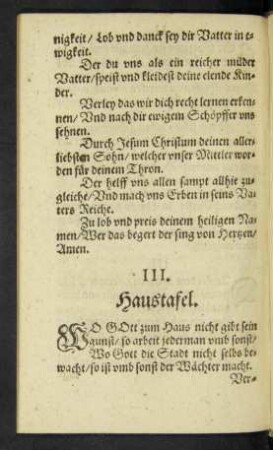 nigkeit/ Lob vnd danck sey dir Vatter in e-
wigkeit.
Der du vns als ein reicher milder
Vatter/speist vnd kleidest deine elende Kin-
der.
Verley das wir dich recht lernen erken-
nen/ Vnd nach dir ewigem Schöpffer vns
sehnen.
Durch Jesum Christum deinen aller-
liebsten Sohn/ welcher vnser Mittler wor-
den für deinem Thron.
Der helff vns allen sampt allhie zu-
gleiche/ Vnd mach vns Erben in seins Va-
ters Reiche.
Zu lob vnd preis deinem heiligen Na-
men/ Wer das begert der sing von Hertzen/
Amen.
III.
Haustafel.
WO GOtt zum Haus nicht gibt sein
gunst/ so arbeit jederman vmb sonst/
Wo Gott die Stadt nicht selbs be-
wacht/ so ist vmb sonst der Wächter macht.
Ver-